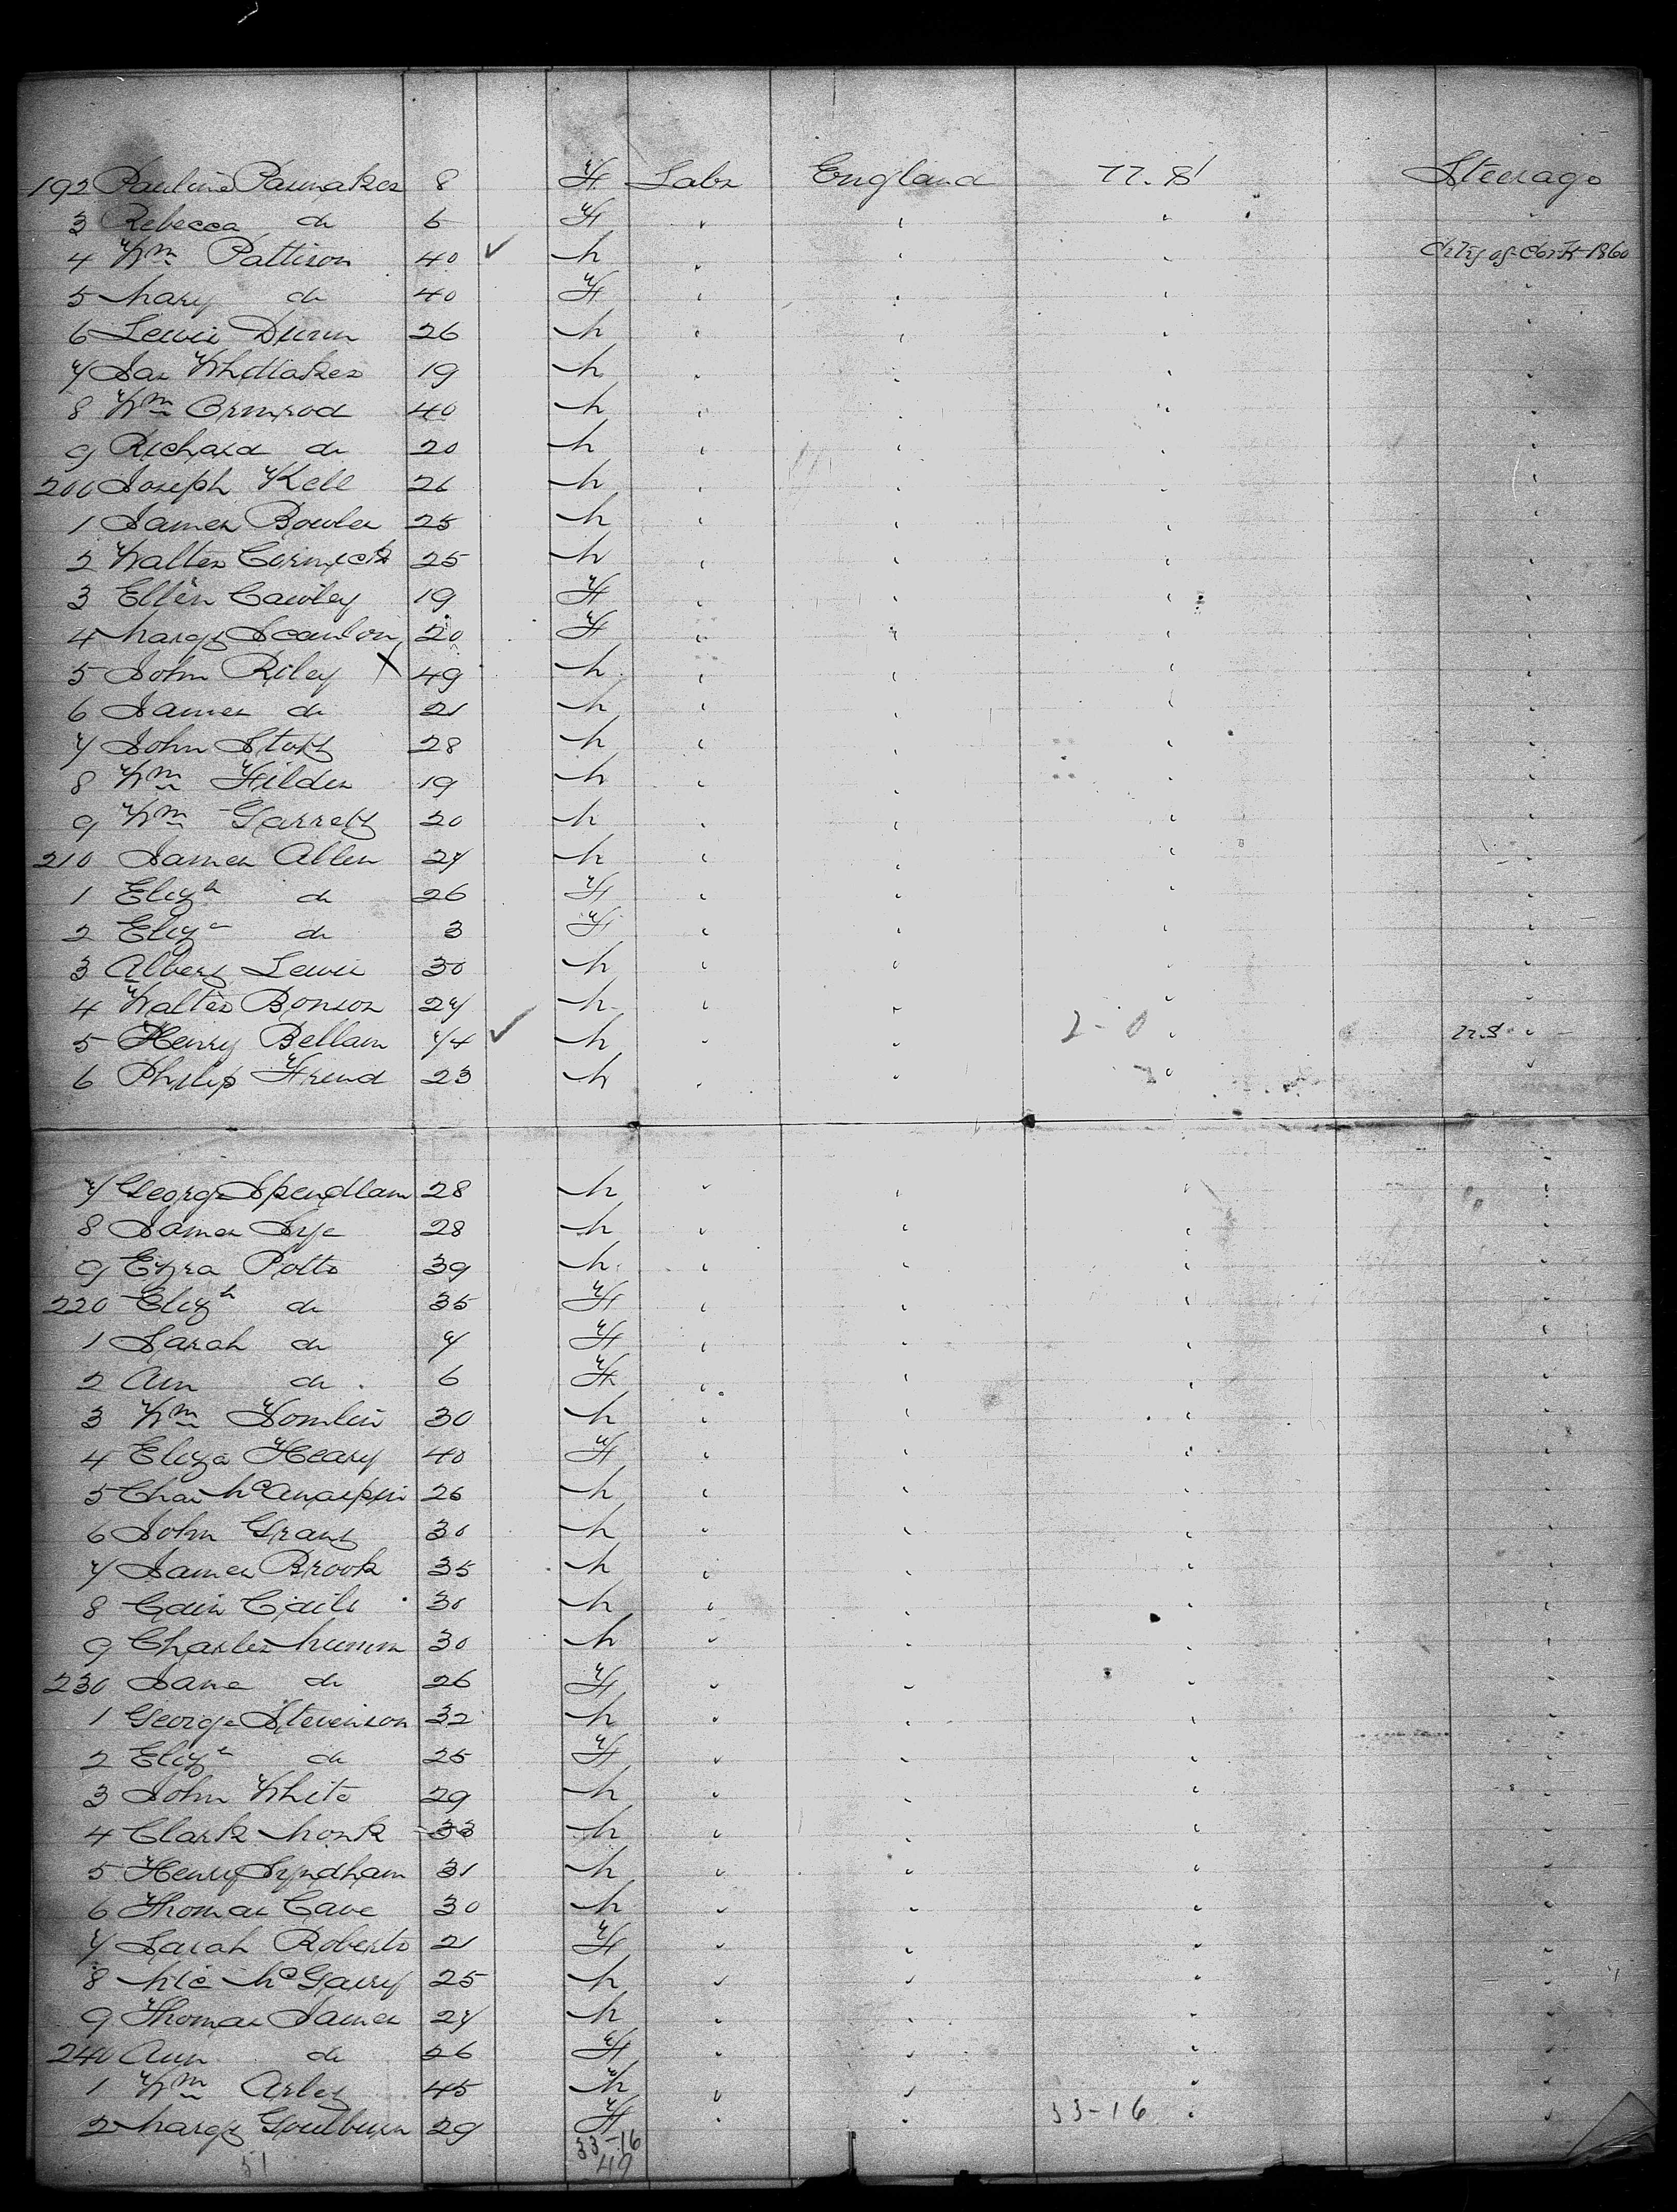 192 Pauline Pawnaker 8 F Labr England U.S. Steerage
3 Rebecca do 5 F " " " "
4 Wm Pattison 40 ✓ M " " " City of Cork 1860
5 Mary do 40 F " " " "
6 Lewis Dunn 26 M " " " "
7 Jas Whittaker 19 M " " " "
8 Wm Ormrod 40 M " " " "
9 Richard do 20 M " " " "
200 Joseph Kell 26 M " " " "
1 James Bowler 25 M " " " "
2 Walter Cormack 25 M " " " "
3 Ellen Cawley 19 F " " " "
4 Margt Scanlon 20 F " " " "
5 John Riley X 49 M " " " "
6 James do 21 M " " " "
7 John Stott 28 M " " " "
8 Wm Filden 19 M " " " "
9 Wm Garrett 20 M " " " "
210 James Allen 27 M " " " "
1 Elizh do 26 F " " " "
2 Eliza do 3 F " " " "
3 Albert Lewis 30 M " " " "
4 Walter Bonson 27 M " " " "
5 Henry Bellam 74 ✓ M " " 2-0 " U.S. "
6 Philip Friend 23 M " " " "
7 George Spendlam 28 M " " " "
8 James Sye 28 M " " " "
9 Ezra Potts 39 M " " " "
220 Elizh do 35 F " " " "
1 Sarah do 7 F " " " "
2 Ann do 6 F " " " "
3 Wm Tomlin 30 M " " " "
4 Eliza Heary 40 F " " " "
5 Chas 26 M " " " "
6 John Grant 30 M " " " "
7 James Brook 35 M " " " "
8 Cain 30 M " " " "
9 Charles Mumm 30 M " " " "
230 Jane do 26 F " " " "
1 George Stevenson 32 M " " " "
2 Elizh do 25 F " " " "
3 John White 29 M " " " "
4 Clark Monk 33 M " " " "
5 Henry Syndham 31 M " " " "
6 Thomas Cave 30 M " " " "
7 Sarah Roberts 21 F " " " "
8 Mic McGarry 25 M " " " "
9 Thomas James 27 M " " " "
240 Ann do 26 F " " " "
1 Wm Arley 45 M " " " "
2 Margt Goulburn 29 F " " 33-16 " "
33-16
51 49